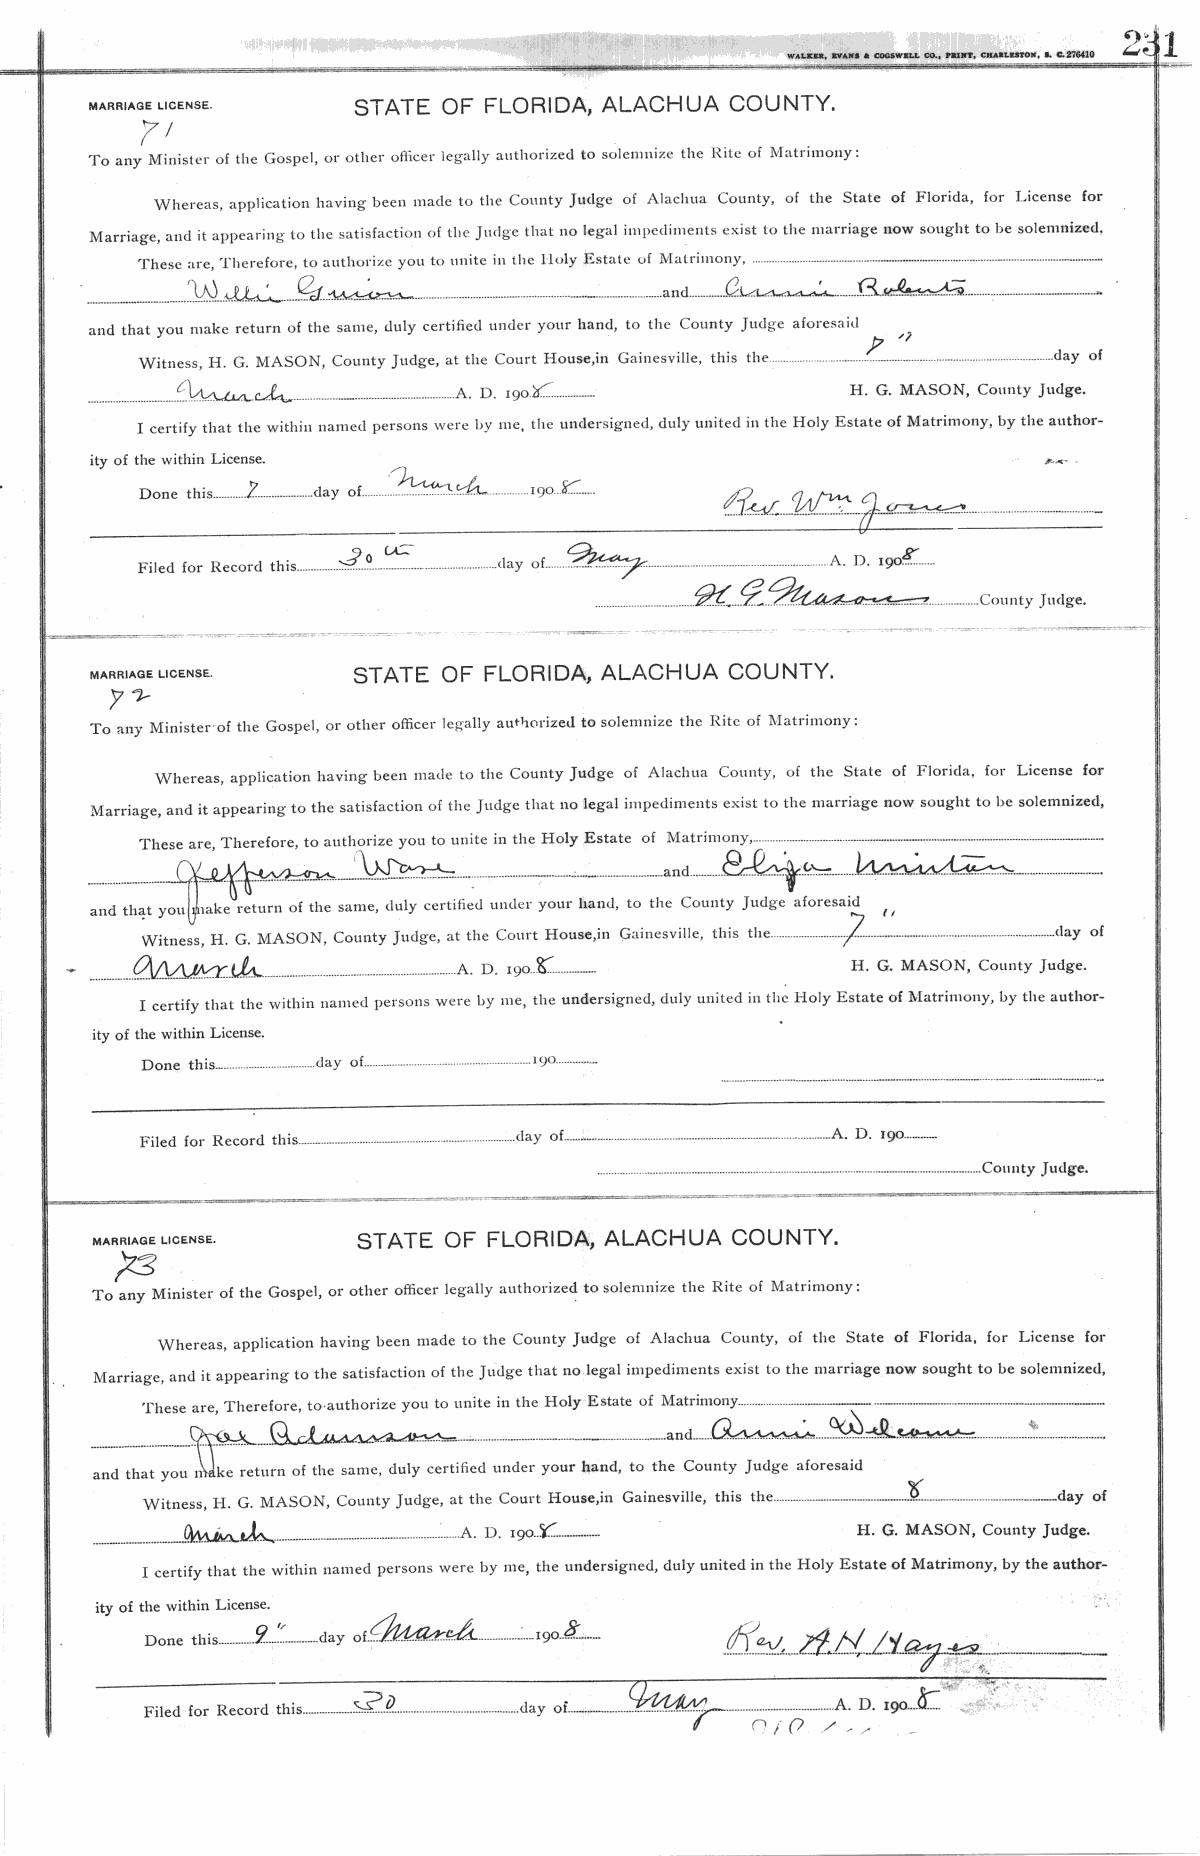 WALKER, EVANS & COGSWELL CO., PRINT, CHARLESTON, S. C. 276410 231
MARRIAGE LICENSE. STATE OF FLORIDA, ALACHUA COUNTY.
71
To any Minister of the Gospel, or other officer legally authorized to solemnize the Rite of Matrimony:
Whereas, application having been made to the County Judge of Alachua County, of the State of Florida, for License for
Marriage, and it appearing to the satisfaction of the Judge that no legal impediments exist to the marriage now sought to be solemnized,
These are, Therefore, to authorize you to unite in the Holy Estate of Matrimony,
Willie Guion and Annie Roberts
and that you make return of the same, duly certified under your hand, to the County Judge aforesaid
Witness, H. G. MASON, County Judge, at the Court House, in Gainesville, this the 7" day of
March A. D. 1908 H. G. MASON, County Judge.
I certify that the within named persons were by me, the undersigned, duly united in the Holy Estate of Matrimony, by the author-
ity of the within License.
Done this 7 day of March 1908
Rev. Wm. Jones
Filed for Record this 30th day of May A. D. 1908
H. G. Mason County Judge.
MARRIAGE LICENSE. STATE OF FLORIDA, ALACHUA COUNTY.
72
To any Minister of the Gospel, or other officer legally authorized to solemnize the Rite of Matrimony:
Whereas, application having been made to the County Judge of Alachua County, of the State of Florida, for License for
Marriage, and it appearing to the satisfaction of the Judge that no legal impediments exist to the marriage now sought to be solemnized,
These are, Therefore, to authorize you to unite in the Holy Estate of Matrimony,
Jefferson Wase and Eliza Minton
and that you make return of the same, duly certified under your hand, to the County Judge aforesaid
Witness, H. G. MASON, County Judge, at the Court House, in Gainesville, this the 7" day of
March A. D. 1908 H. G. MASON, County Judge.
I certify that the within named persons were by me, the undersigned, duly united in the Holy Estate of Matrimony, by the author-
ity of the within License.
Done this day of 190
Filed for Record this day of A. D. 190
County Judge.
MARRIAGE LICENSE. STATE OF FLORIDA, ALACHUA COUNTY.
73
To any Minister of the Gospel, or other officer legally authorized to solemnize the Rite of Matrimony:
Whereas, application having been made to the County Judge of Alachua County, of the State of Florida, for License for
Marriage, and it appearing to the satisfaction of the Judge that no legal impediments exist to the marriage now sought to be solemnized,
These are, Therefore, to authorize you to unite in the Holy Estate of Matrimony
Joe Adamson and Annie Welcome
and that you make return of the same, duly certified under your hand, to the County Judge aforesaid
Witness, H. G. MASON, County Judge, at the Court House, in Gainesville, this the 8 day of
March A. D. 1908 H. G. MASON, County Judge.
I certify that the within named persons were by me, the undersigned, duly united in the Holy Estate of Matrimony, by the author-
ity of the within License.
Done this 9" day of March 1908
Rev. A. N. Hayes
Filed for Record this 30 day of May A. D. 1908